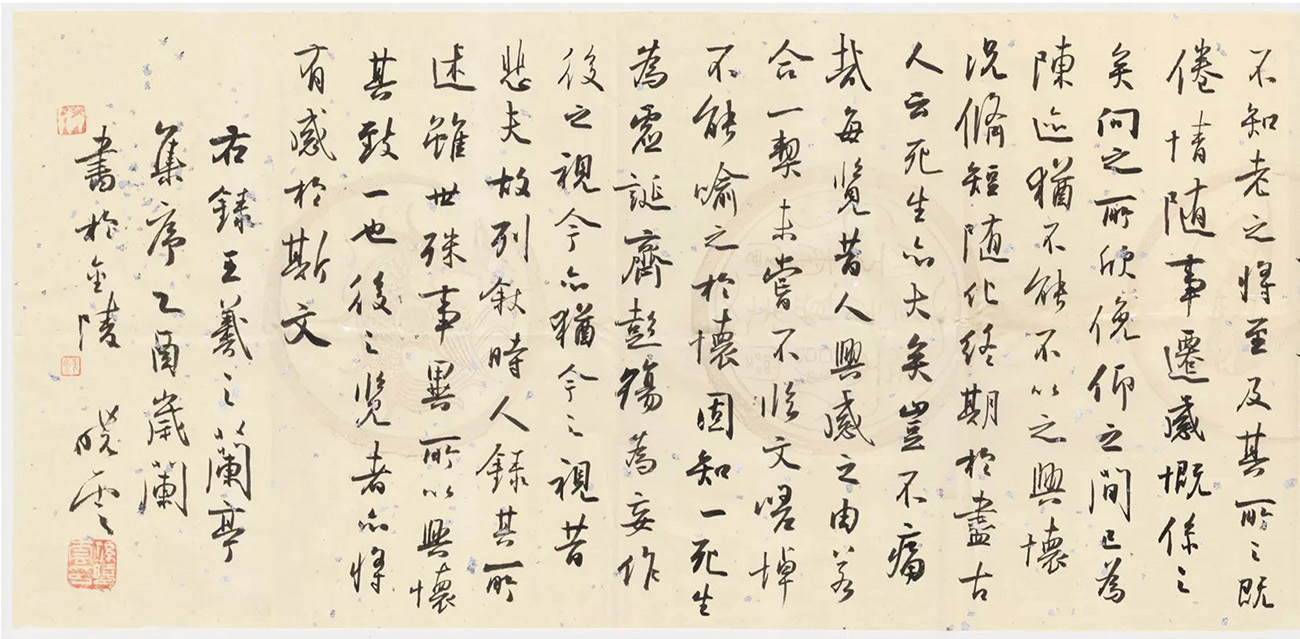 不知老之将至及其所之既
倦情随事遷感慨係之
矣向之所欣俛仰之間已為
陳迹猶不能不以之興懷
況脩短随化終期於盡古
人云死生亦大矣豈不痛
哉每覽昔人興感之由若
合一契未嘗不臨文嗟悼
不能喻之於懷固知一死生
為虛誕齊彭殤為妄作
後之視今亦猶今之視昔
悲夫故列敘時人錄其所
述雖世殊事異所以興懷
其致一也後之覽者亦將
有感於斯文
右錄王羲之蘭亭
集序乙酉歲蘭
書於金陵 曉雲